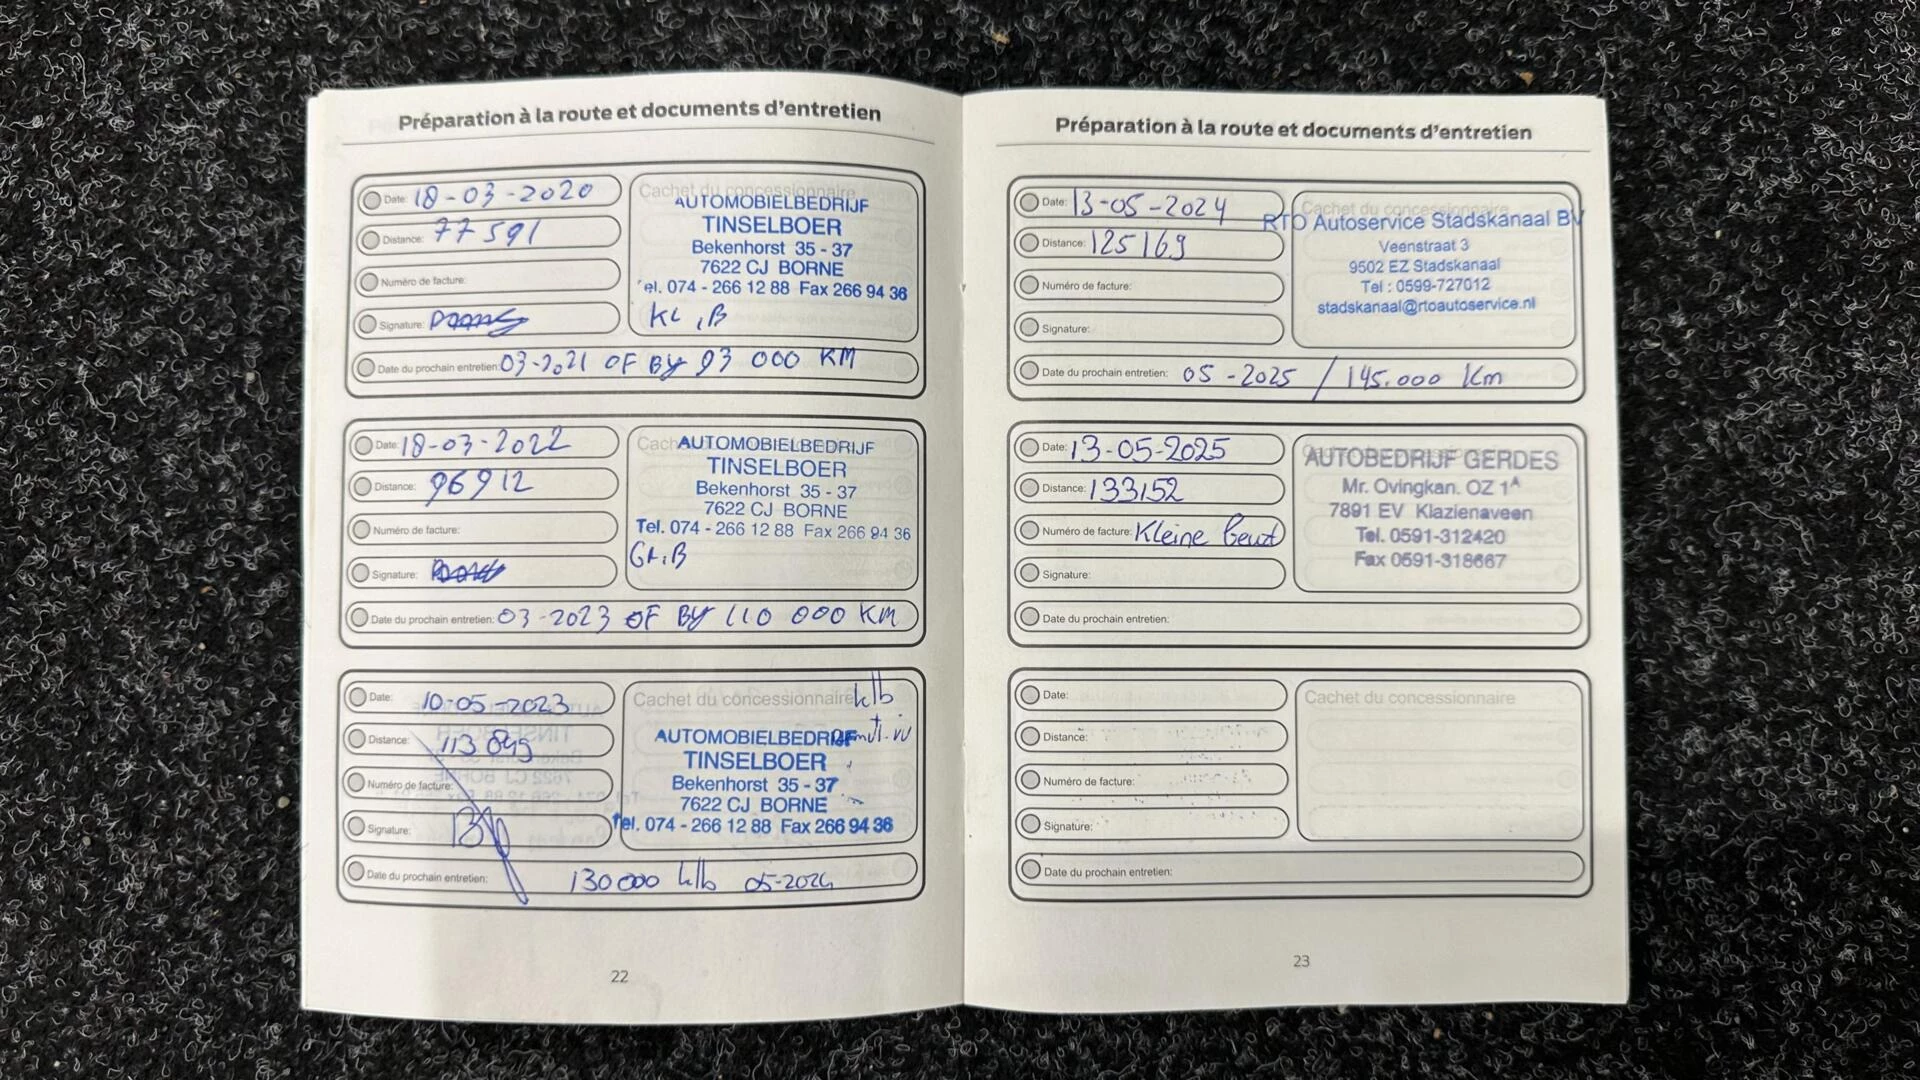 Préparation à la route et documents d'entretien
Date: 18-03-2020
Distance: 77591
Numéro de facture:
Signature:
Cachet du concessionnaire
AUTOMOBIELBEDRIJF
TINSELBOER
Bekenhorst 35 - 37
7622 CJ BORNE
el. 074 - 266 12 88 Fax 266 94 36
KL, B
Date du prochain entretien: 03-2021 OF BY 93 000 KM
Date: 18-03-2022
Distance: 96912
Numéro de facture:
Signature:
Cach
AUTOMOBIELBEDRIJF
TINSELBOER
Bekenhorst 35 - 37
7622 CJ BORNE
Tel. 074 - 266 12 88 Fax 266 94 36
GR, B
Date du prochain entretien: 03-2023 OF BY 110 000 KM
Date: 10-05-2023
Distance: 113845
Numéro de facture:
Signature:
Cachet du concessionnaire klb
AUTOMOBIELBEDRIJF
TINSELBOER
Bekenhorst 35 - 37
7622 CJ BORNE
Tel. 074 - 266 12 88 Fax 266 94 36
Date du prochain entretien: 130000 klb 05-2024
22
Préparation à la route et documents d'entretien
Date: 13-05-2024
Distance: 125169
Numéro de facture:
Signature:
Cachet du concessionnaire
RTO Autoservice Stadskanaal BV
Veenstraat 3
9502 EZ Stadskanaal
Tel : 0599-727012
stadskanaal@rtoautoservice.nl
Date du prochain entretien: 05-2025 / 145.000 Km
Date: 13-05-2025
Distance: 133152
Numéro de facture: Kleine beurt
Signature:
AUTOBEDRIJF GERDES
Mr. Ovingkan. OZ 1A
7891 EV Klazienaveen
Tel. 0591-312420
Fax 0591-318667
Date du prochain entretien:
Date:
Distance:
Numéro de facture:
Signature:
Cachet du concessionnaire
Date du prochain entretien:
23